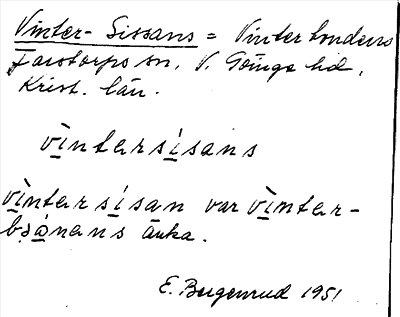 Vinter-Sissans = Vinterbondens
Farstorps sn, V. Göinge hd,
Krist. län.
vìntersísans
vìntersísan var vìnter-
bṣǫ̀nans ä̀nka.
E. Bergenrud 1951